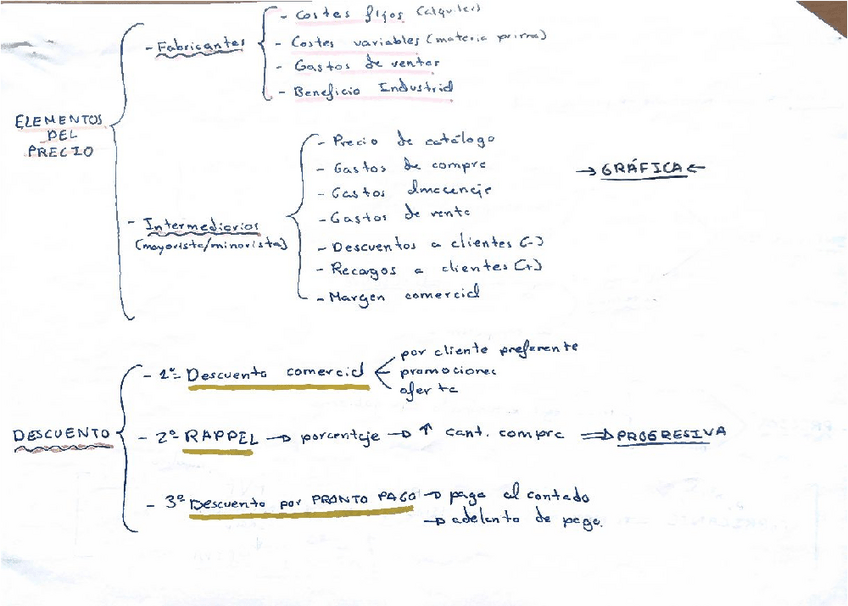 ELEMENTOS
DEL
PRECIO
- Fabricantes
- Costes fijos (alquiler)
- Costes variables (materia prima)
- Gastos de ventas
- Beneficio Industrial
- Intermediarios
(mayorista/minorista)
- Precio de catálogo
- Gastos de compra
- Gastos almacenaje
- Gastos de venta
- Descuentos a clientes (-)
- Recargos a clientes (+)
- Margen comercial
→ GRÁFICA ←
DESCUENTO
- 1º- Descuento comercial
por cliente preferente
promociones
oferta
- 2º- RAPPEL → porcentaje → ↑ cant. compra ⇒ PROGRESIVA
- 3º Descuento por PRONTO PAGO → paga al contado
→ adelanto de pago.